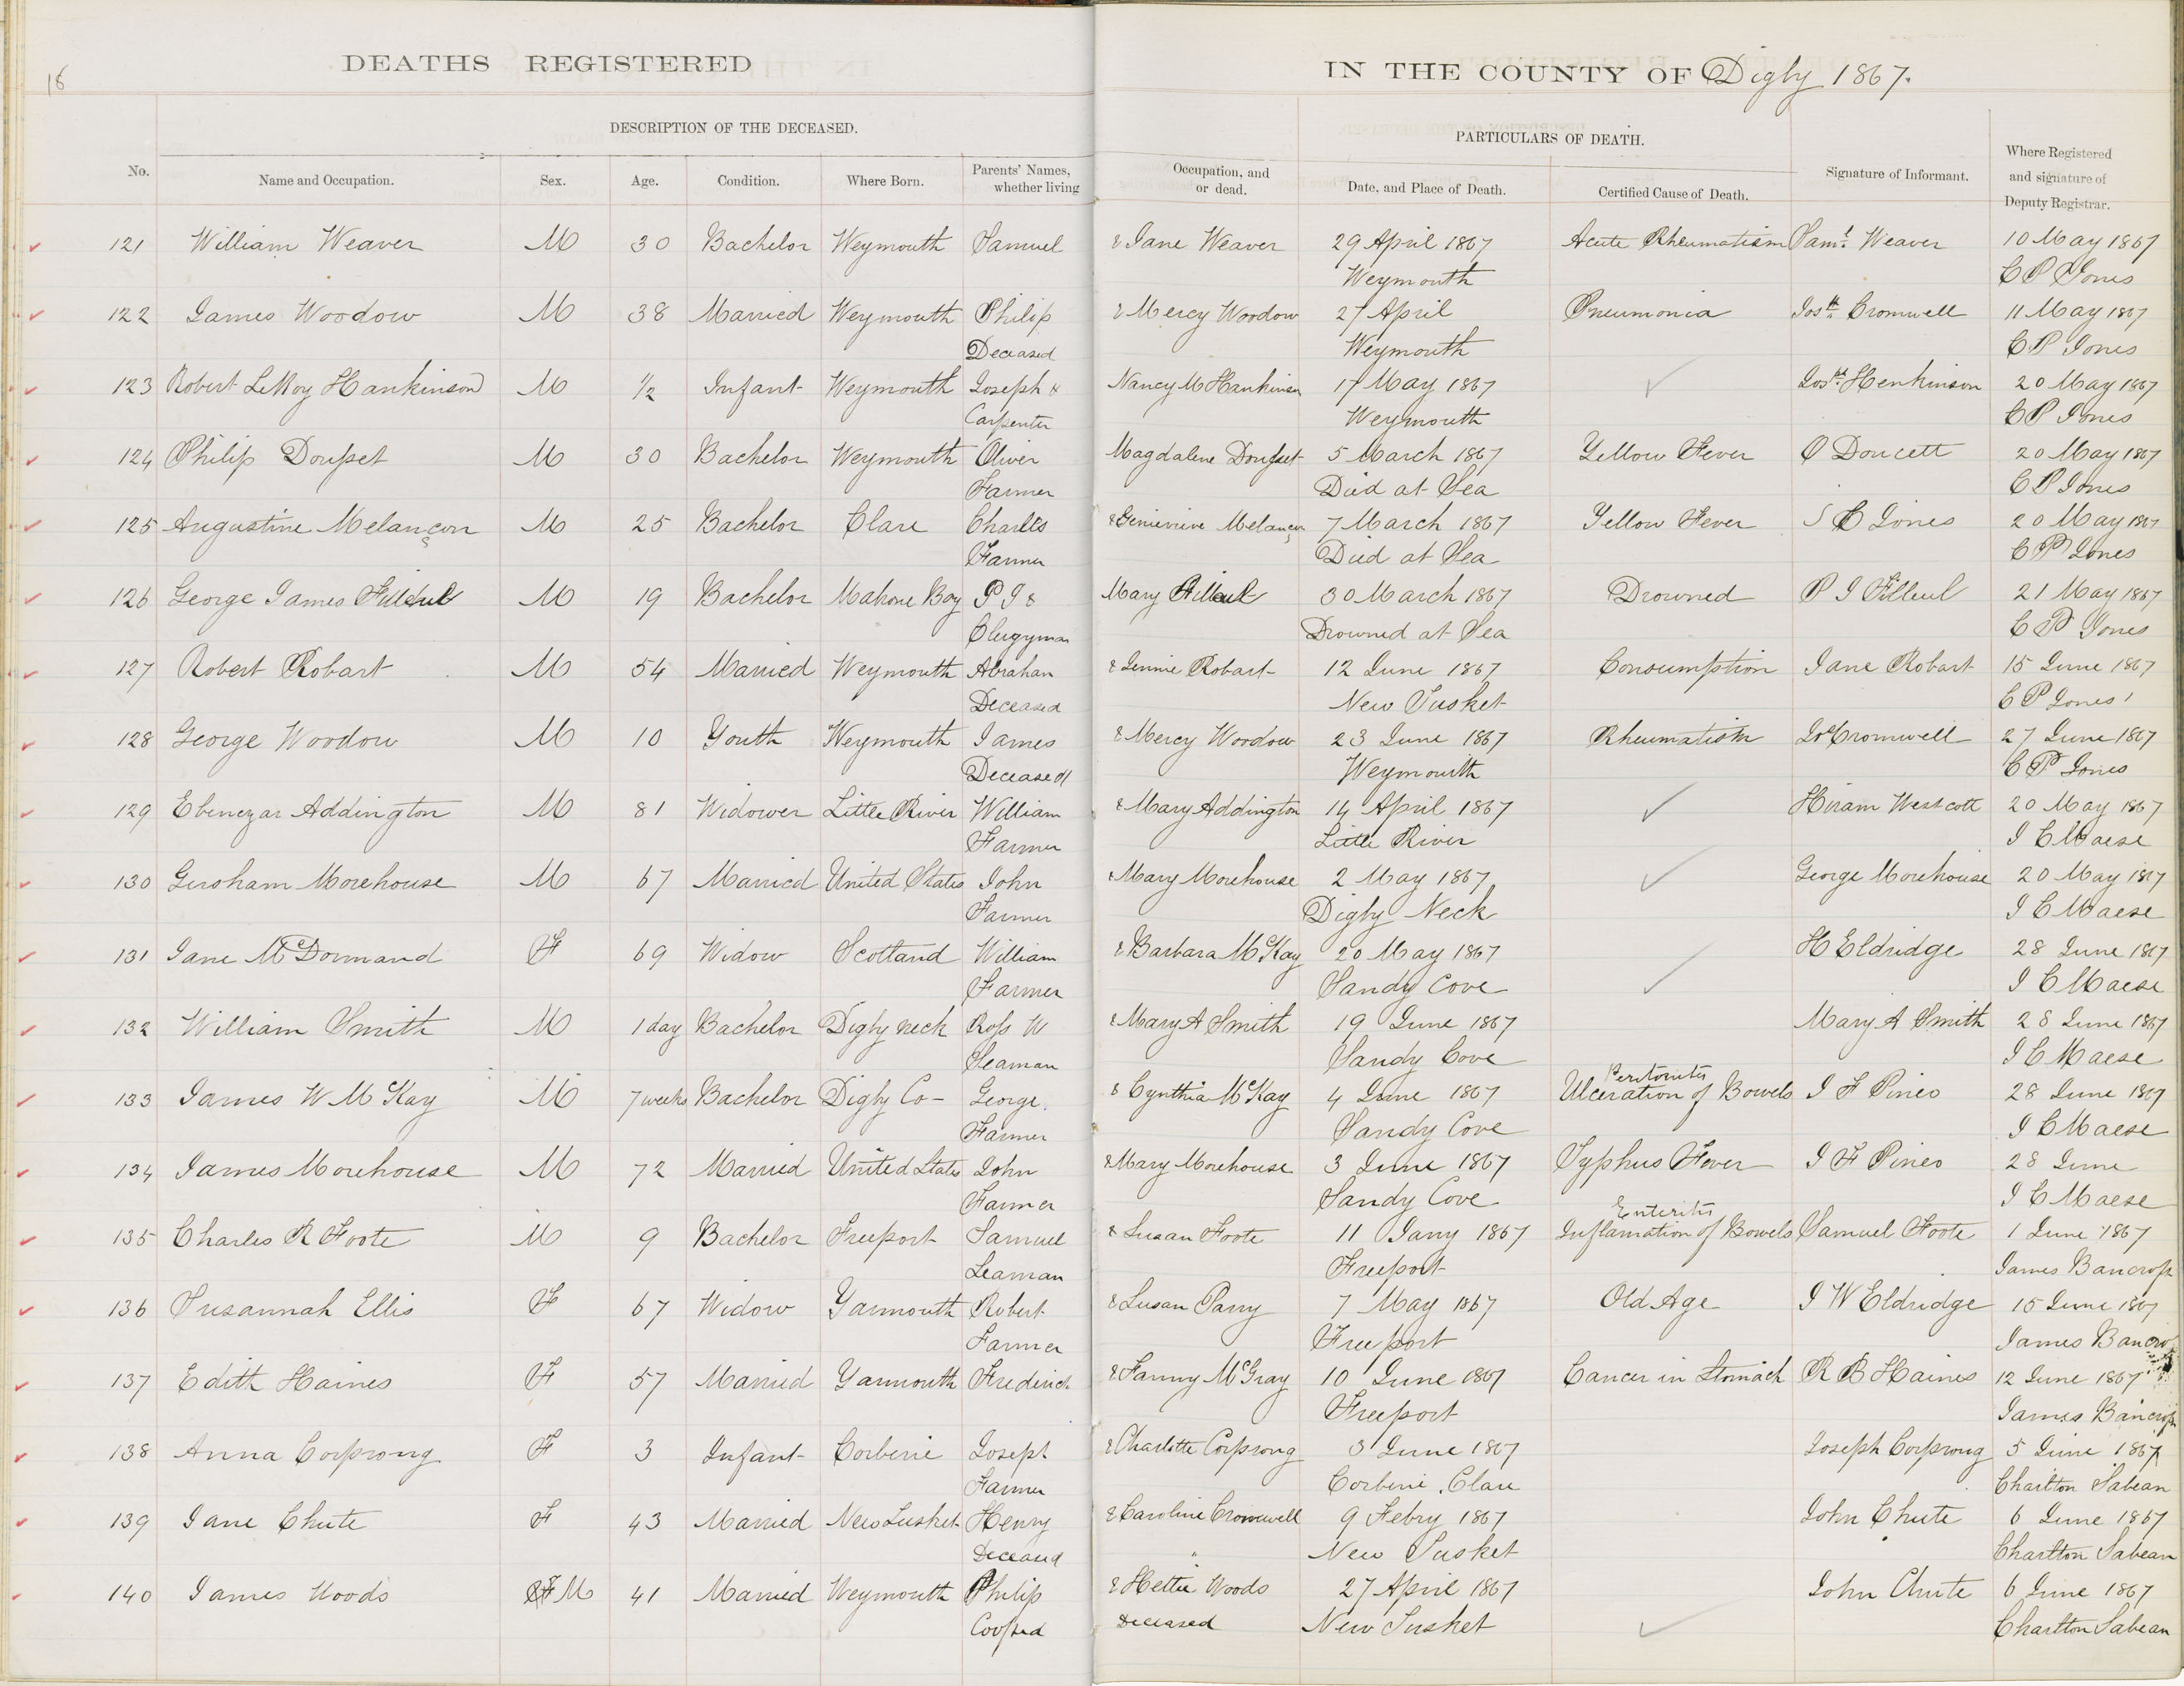 DEATHS REGISTERED
IN THE COUNTY OF Digby 1867.
16
DESCRIPTION OF THE DECEASED.
PARTICULARS OF DEATH.
No. Name and Occupation. Sex. Age. Condition. Where Born. Parents' Names, whether living Occupation, and or dead. Date, and Place of Death. Certified Cause of Death. Signature of Informant. Where Registered and signature of Deputy Registrar.
121 William Weaver M 30 Bachelor Weymouth Samuel & Jane Weaver 29 April 1867 Acute Rheumatism Saml. Weaver 10 May 1867
Weymouth C P Jones
122 James Woodow M 38 Married Weymouth Philip & Mercy Woodow 27 April Pneumonia Josh. Cromwell 11 May 1867
Deceased Weymouth C P Jones
123 Robert LeRoy Hankinson M 1/2 Infant Weymouth Joseph & Nancy M Hankinson 17 May 1867 Josh. Henkinson 20 May 1867
Carpenter Weymouth C P Jones
124 Philip Doußet M 30 Bachelor Weymouth Oliver Magdalene Doußet 5 March 1867 Yellow Fever O Doucett 20 May 1867
Farmer Died at Sea C P Jones
125 Augustine Melançon M 25 Bachelor Clare Charles & Genievieve Melançon 7 March 1867 Yellow Fever S C Jones 20 May 1867
Farmer Died at Sea C P Jones
126 George James Filleul M 19 Bachelor Mahone Bay P J & Mary Filleul 30 March 1867 Drowned P J Filleul 21 May 1867
Clergyman Drowned at Sea C P Jones
127 Robert Robart M 54 Married Weymouth Abrahan & Jennie Robart 12 June 1867 Consumption Jane Robart 15 June 1867
Deceased New Tusket C P Jones
128 George Woodow M 10 Youth Weymouth James & Mercy Woodow 23 June 1867 Rheumatism Jos Cromwell 27 June 1867
Deceased Weymouth C P Jones
129 Ebenezar Addington M 81 Widower Little River William & Mary Addington 14 April 1867 Hiram Westcott 20 May 1867
Farmer Little River J C Maese
130 Gersham Morehouse M 67 Married United States John & Mary Morehouse 2 May 1867 George Morehouse 20 May 1867
Farmer Digby Neck J C Maese
131 Jane McDormand F 69 Widow Scotland William & Barbara McKay 20 May 1867 H Eldridge 28 June 1867
Farmer Sandy Cove J C Maese
132 William Smith M 1 day Bachelor Digby neck Roß W & Mary A Smith 19 June 1867 Mary A Smith 28 June 1867
Seaman Sandy Cove J C Maese
Peritonitis
133 James W McKay M 7 weeks Bachelor Digby Co- George & Cynthia McKay 4 June 1867 Ulceration of Bowels J F Pineo 28 June 1867
Farmer Sandy Cove J C Maese
134 James Morehouse M 72 Married United States John & Mary Morehouse 3 June 1867 Typhus Fever J F Pineo 28 June
Farmer Sandy Cove J C Maese
Enteritis
135 Charles R Foote M 9 Bachelor Freeport Samuel & Susan Foote 11 Jany 1867 Inflamation of Bowels Samuel Foote 1 June 1867
Seaman Freeport James Bancroft
136 Susannah Ellis F 67 Widow Yarmouth Robert & Susan Parry 7 May 1867 Old Age J W Eldridge 15 June 1867
Farmer Freeport James Bancroft
137 Edith Haines F 57 Married Yarmouth Frederick & Fanny McGray 10 June 1867 Cancer in Stomach R B Haines 12 June 1867
Freeport James Bancroft
138 Anna Corprong F 3 Infant Corberie Joseph & Charlotte Corprong 3 June 1867 Joseph Corprong 5 June 1867
Farmer Corberie, Clare Charlton Sabean
139 Jane Chute F 43 Married New Tusket Henry & Caroline Cromwell 9 Febry 1867 John Chute 6 June 1867
Deceased " New Tusket Charlton Sabean
140 James Woods M 41 Married Weymouth Philip & Hettie Woods 27 April 1867 John Chute 6 June 1867
Deceased New Tusket Charlton Sabean